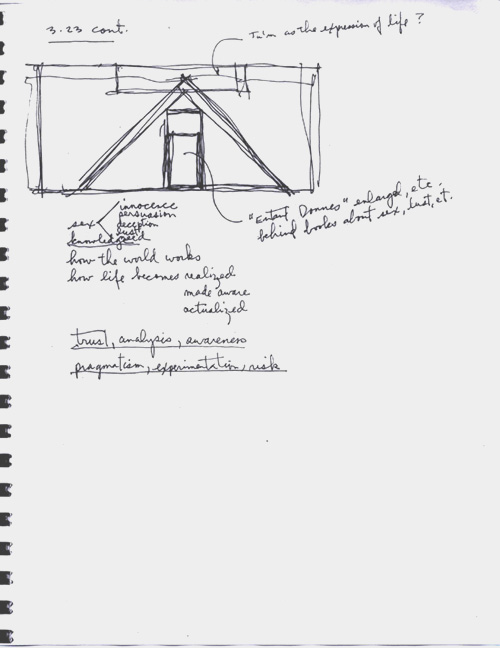 3.23 cont.
Tu'm as the expression of life?
"Etant Donnes" enlarged, etc.
behind books about sex, lust, et.
innocence
persuasion
sex deception
lust
knowledge
how the world works
how life becomes realized
made aware
actualized
trust, analysis, awareness
pragmatism, experimentation, risk